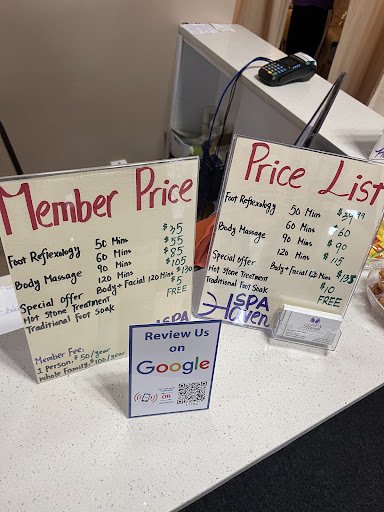 Member Price
Foot Reflexology 50 Mins $35
Body Massage 60 Mins $55
90 Mins $85
120 Mins $105
Special Offer Body + Facial 120 Mins $130
Hot Stone Treatment $5
Traditional Foot Soak FREE
Member Fee:
1 person: $50/year
Whole Family: $100/year
Price List
Foot Reflexology 50 Mins
Body Massage 60 Mins $60
90 Mins $90
120 Mins $115
Special Offer Body + Facial 120 Mins $138
Hot Stone Treatment $10
Traditional Foot Soak FREE
SPA
Haven
Review Us
on
Google
OR